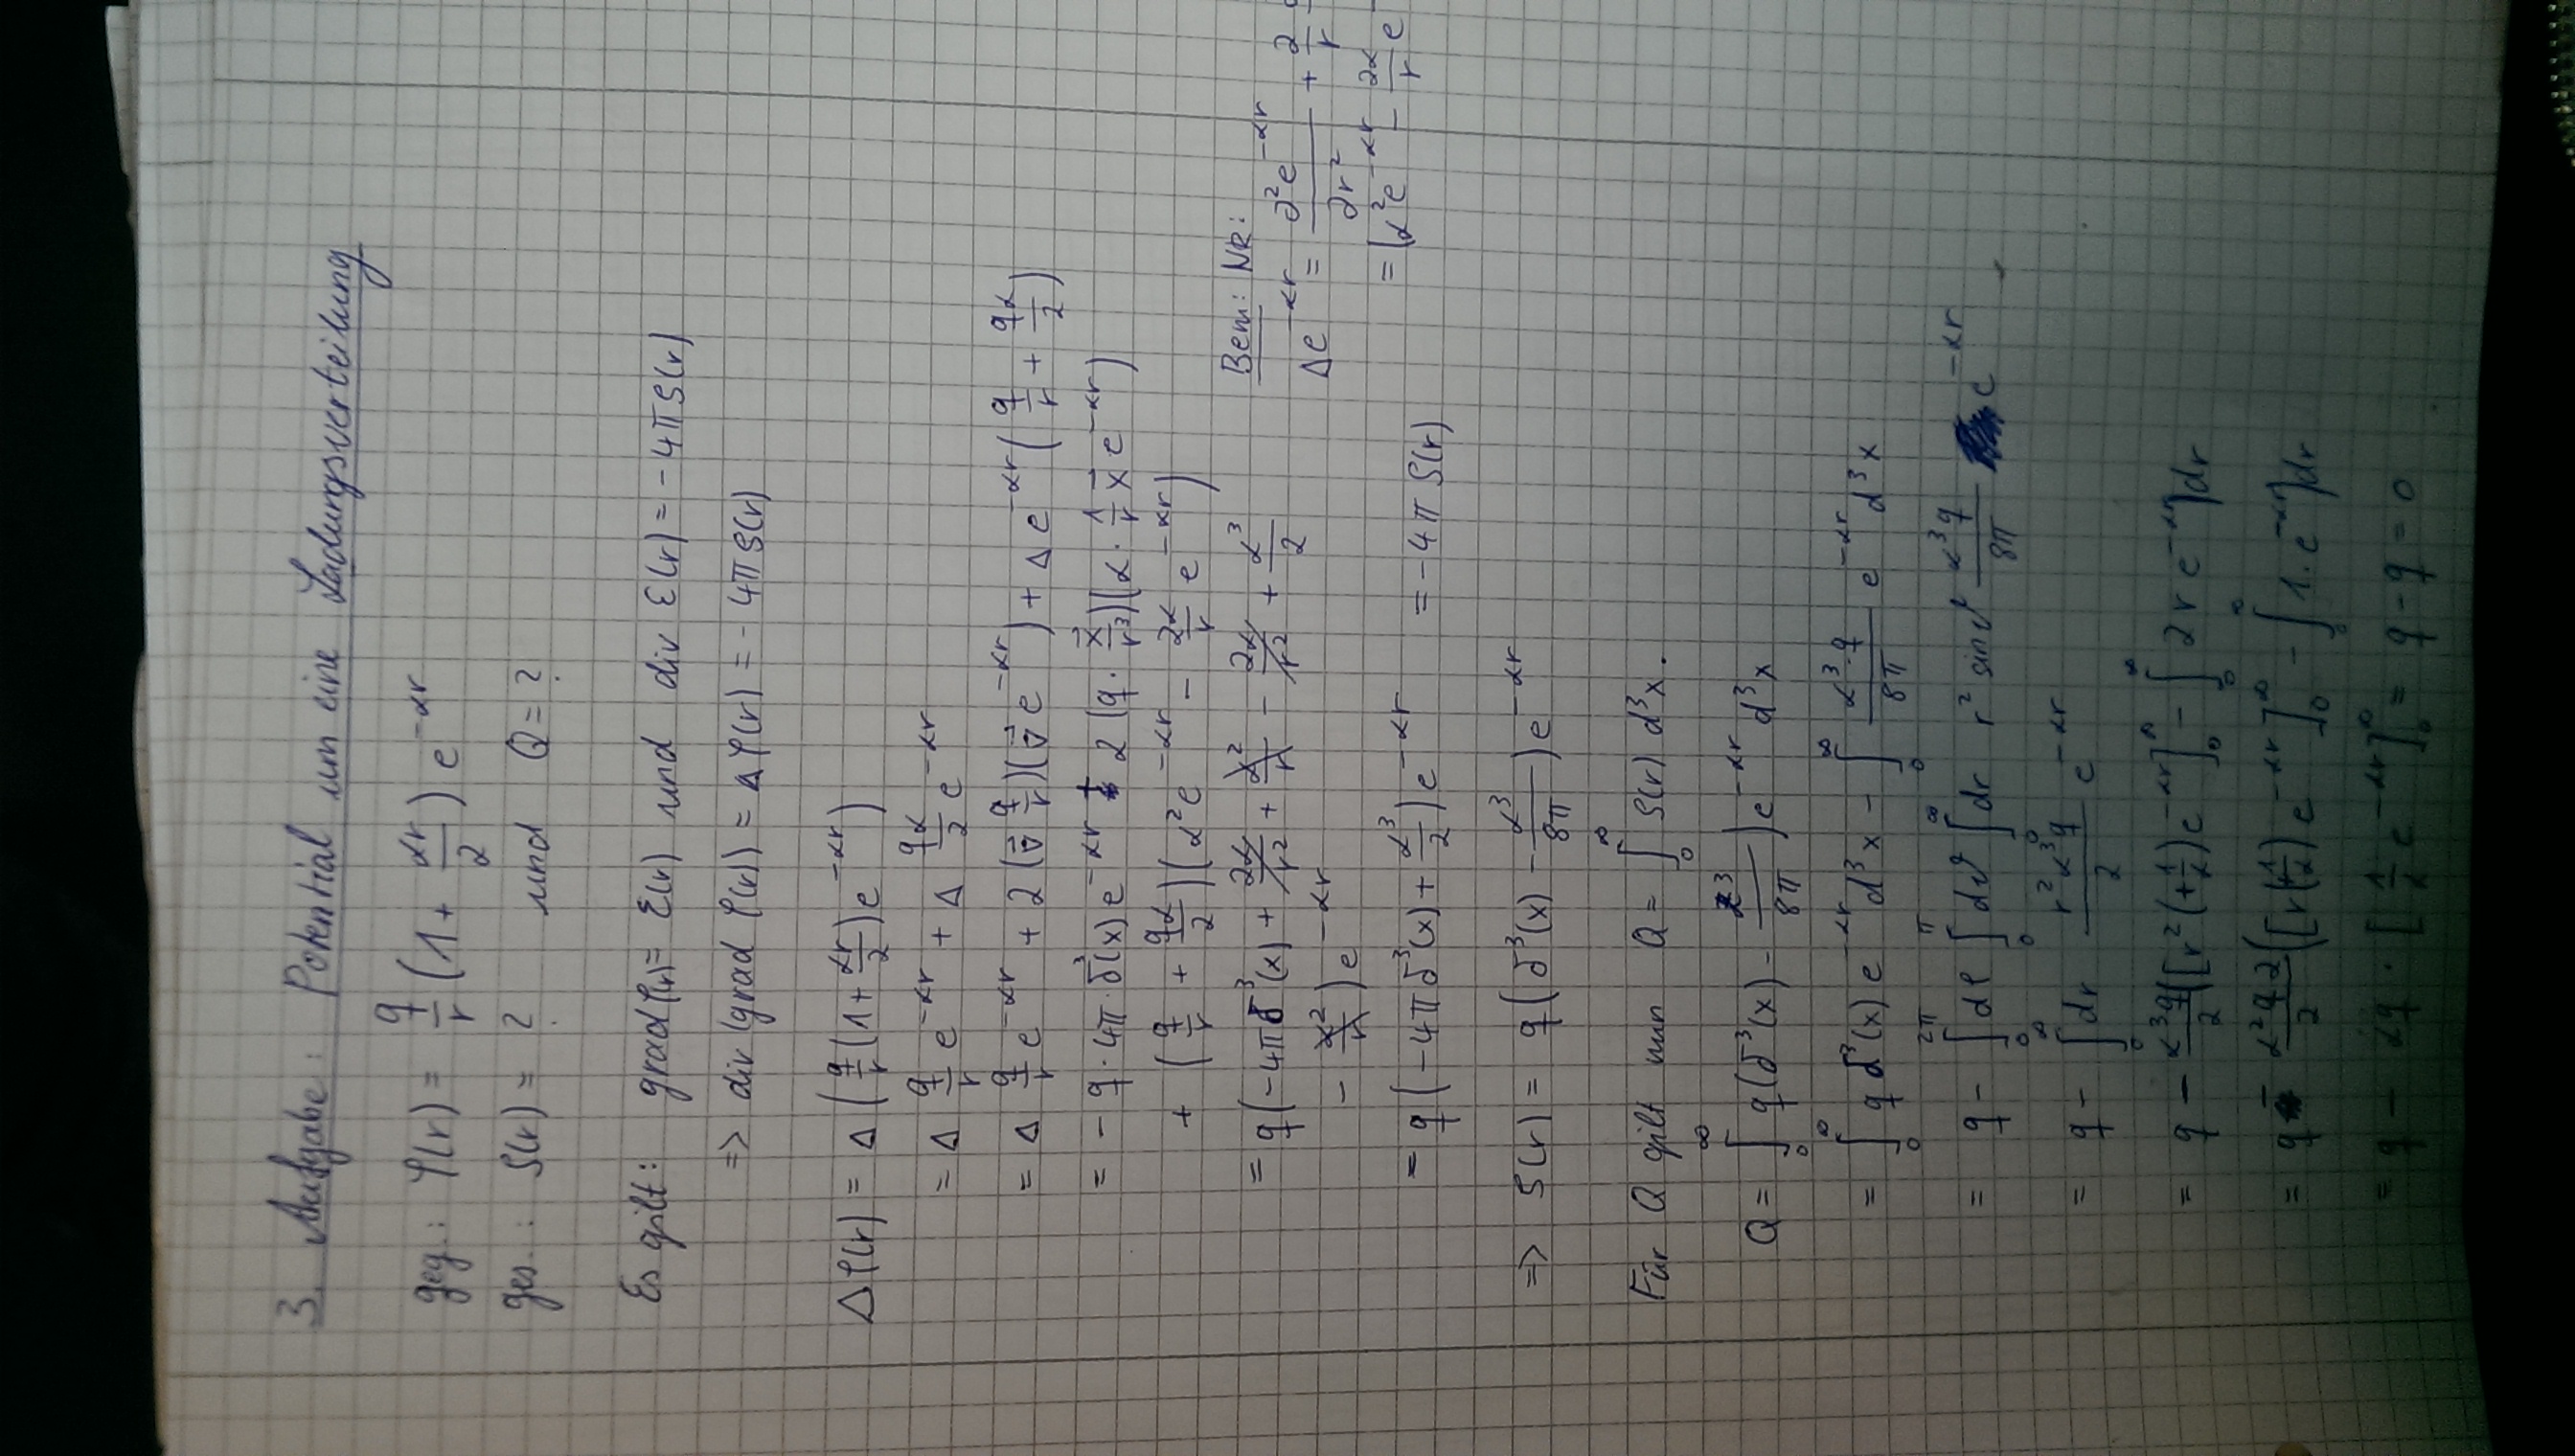 3. Aufgabe: Potential um eine Ladungsverteilung
geg.: φ(r) = q/r (1 + αr/2) e^{-αr}
ges.: ρ(r) = ? und Q = ?
Es gilt: grad φ(r) = ε(r) und div ε(r) = -4πρ(r)
=> div (grad φ(r)) = Δ φ(r) = -4πρ(r)
Δφ(r) = Δ (q/r (1 + αr/2) e^{-αr})
= Δ q/r e^{-αr} + Δ qα/2 e^{-αr}
= Δ q/r e^{-αr} + 2(∇⃗ q/r)(∇⃗ e^{-αr}) + Δ e^{-αr} (q/r + qα/2)
= -q · 4π · δ³(x) e^{-αr} + 2 (q · x⃗/r³)(α · 1/r x⃗ e^{-αr})
+ (q/r + qα/2)(α² e^{-αr} - 2α/r e^{-αr})
= q(-4πδ³(x) + 2α/r² + α²/r - 2α/r² + α³/2
- α²/r) e^{-αr}
Bem: NR:
Δe^{-αr} = ∂²e^{-αr}/∂r² + 2/r
= (α² e^{-αr} - 2α/r e
= q(-4πδ³(x) + α³/2) e^{-αr} = -4πρ(r)
=> ρ(r) = q (δ³(x) - α³/8π) e^{-αr}
Für Q gilt nun Q = ∫₀^∞ ρ(r) d³x.
Q = ∫₀^∞ q(δ³(x) - α³/8π) e^{-αr} d³x
= ∫₀^∞ q δ³(x) e^{-αr} d³x - ∫₀^∞ α³ q/8π e^{-αr} d³x
= q - ∫₀^{2π} dφ ∫₀^π dϑ ∫₀^∞ dr r² sin ϑ α³q/8π e^{-αr}
= q - ∫₀^∞ dr r² α³ q/2 e^{-αr}
= q - α³q/2 ([r² (+1/α) e^{-αr}]₀^∞ - ∫₀^∞ 2r e^{-αr}) dr
= q - α²q2/2 ([r(1/α) e^{-αr}]₀^∞ - ∫₀^∞ 1 · e^{-αr}) dr
= q - αq · [1/α e^{-αr}]₀^∞ = q - q = 0